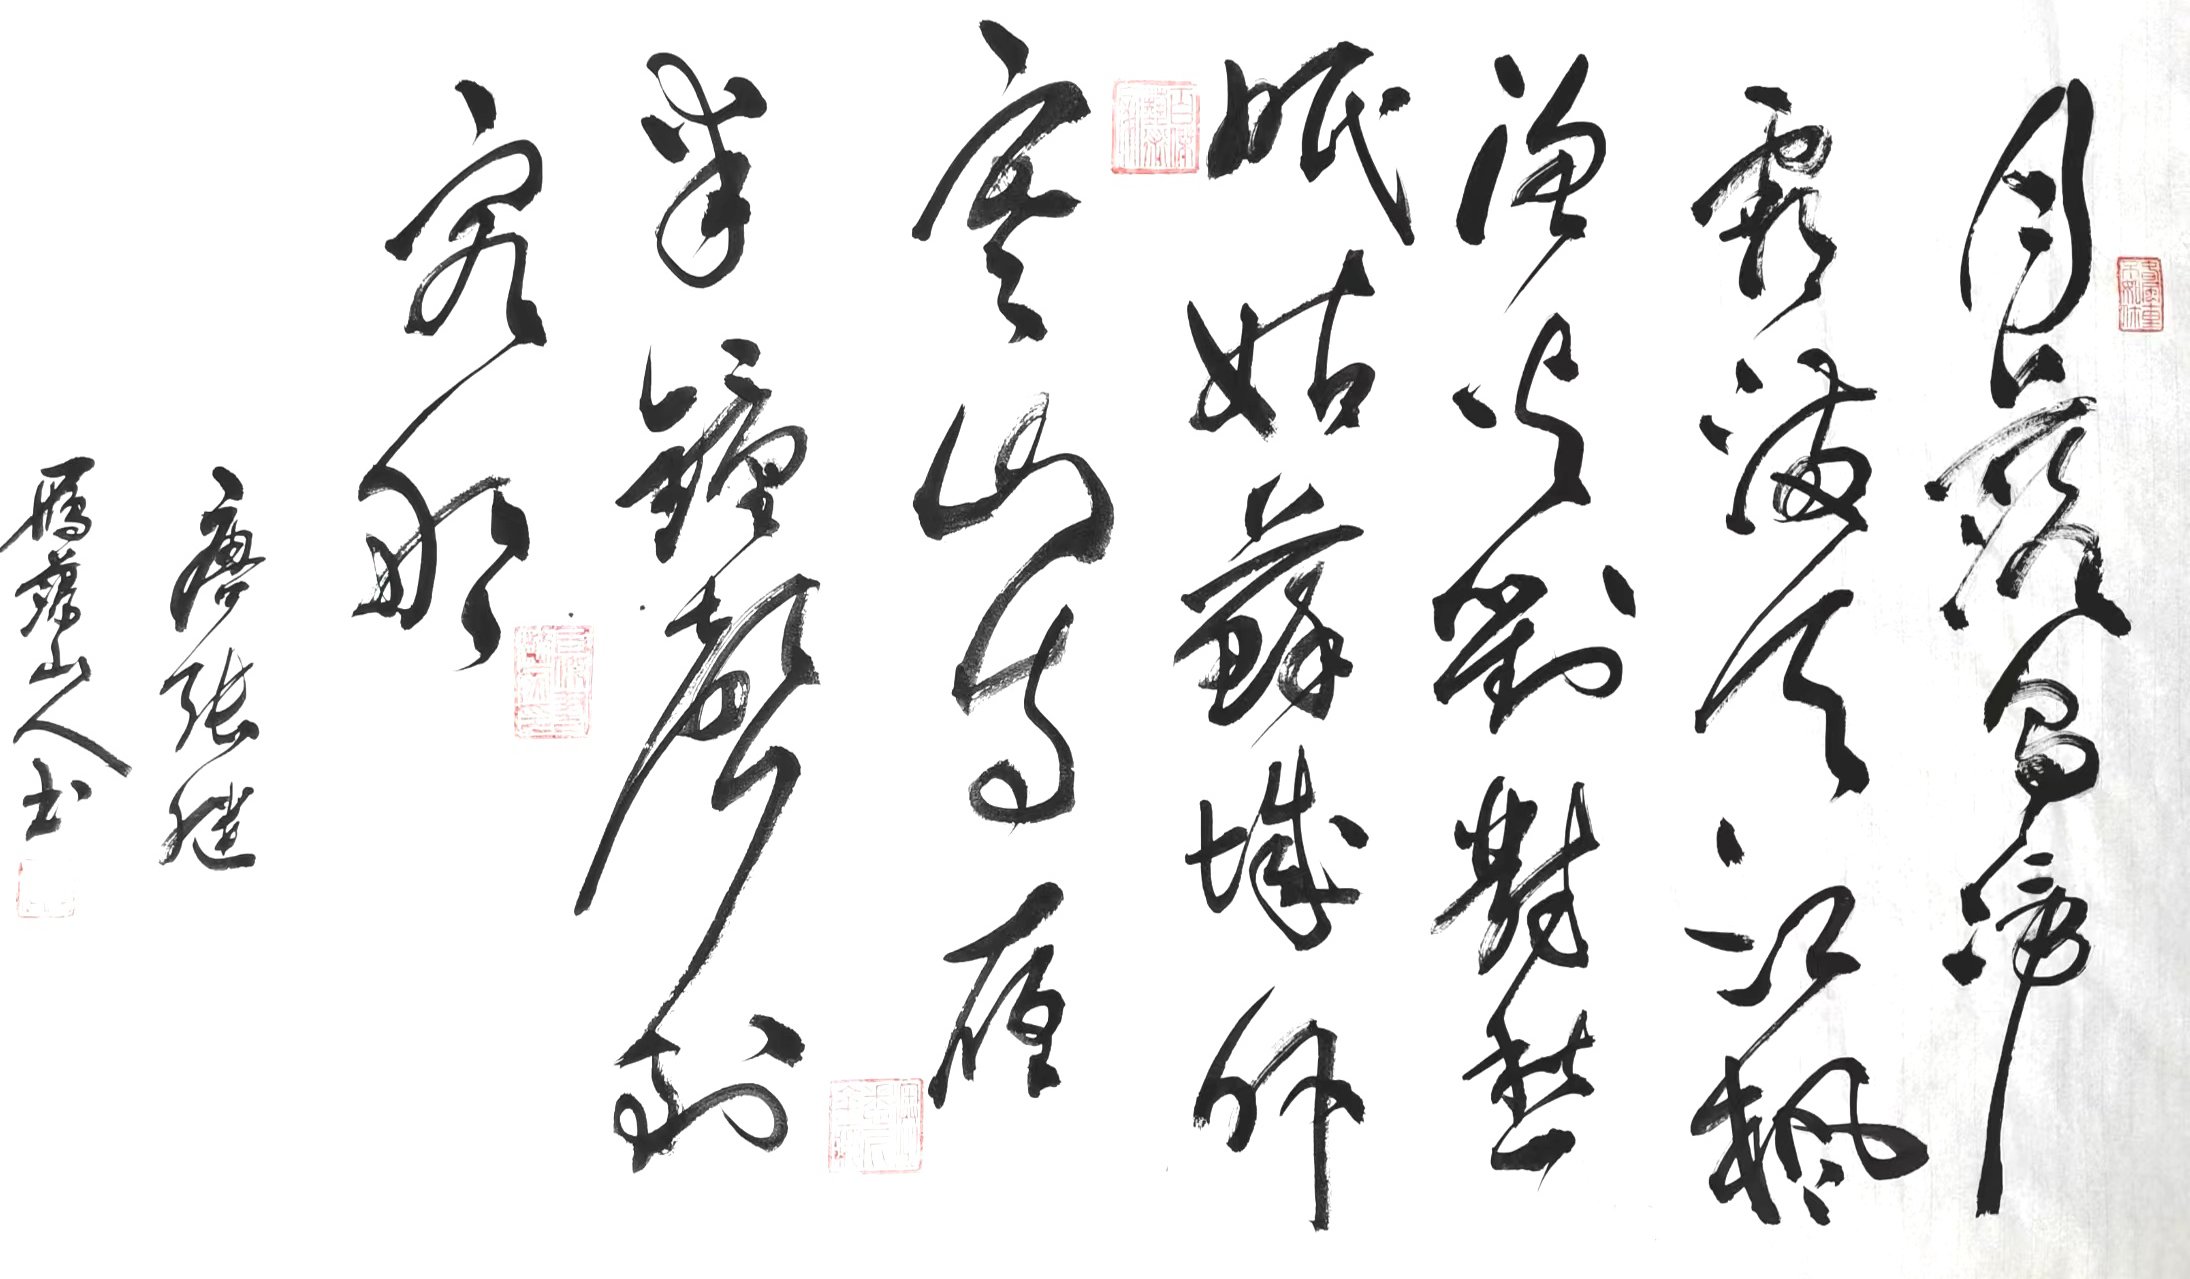 月落烏啼
霜滿天江楓
漁火對愁
眠姑蘇城外
寒山寺夜
半鐘聲到
客船
唐張繼
雁蕩山人书